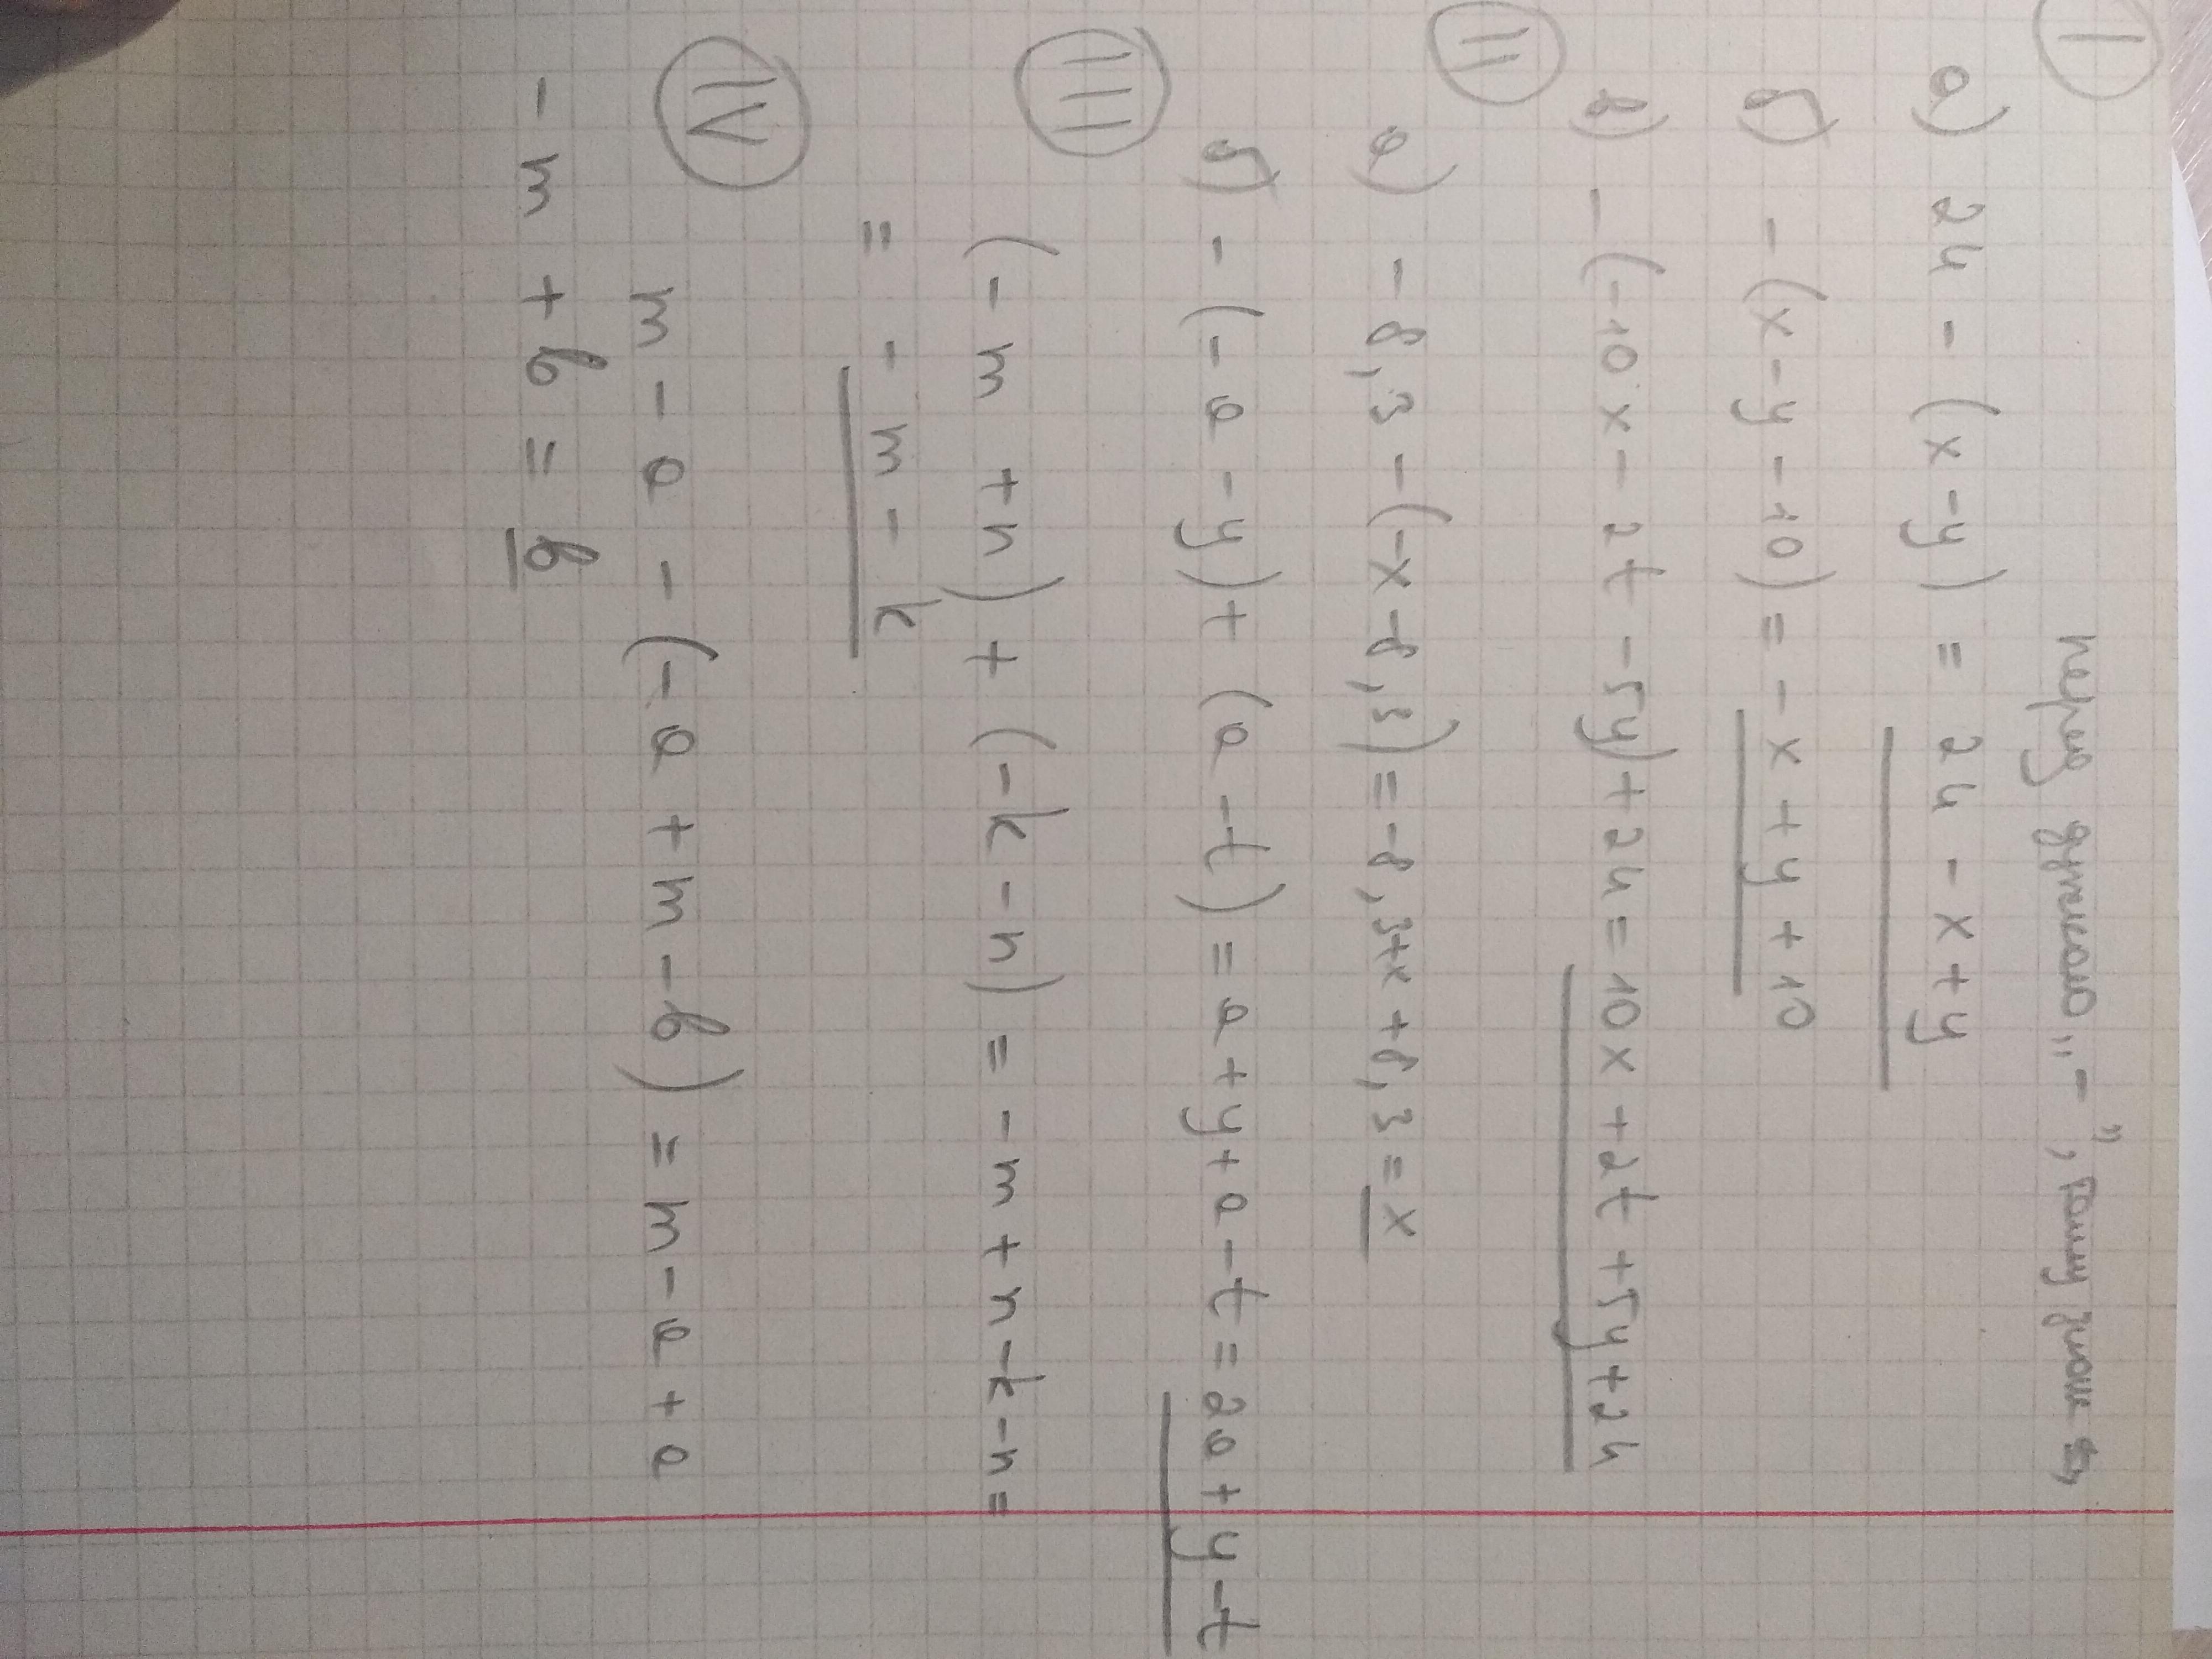 I
перед дужкою „-”, тому знак
а) 24 - (x - y) = 24 - x + y
б) - (x - y - 10) = - x + y + 10
в) - (-10x - 2t - 5y) + 24 = 10x + 2t + 5y + 24
II
а) - 8,3 - (-x - 8,3) = -8,3 + x + 8,3 = x
б) - (- a - y) + (a - t) = a + y + a - t = 2a + y - t
III
(- m + n) + (- k - n) = - m + n - k - n =
= - m - k
IV
m - a - (- a + m - b) = m - a + a
- m + b = b